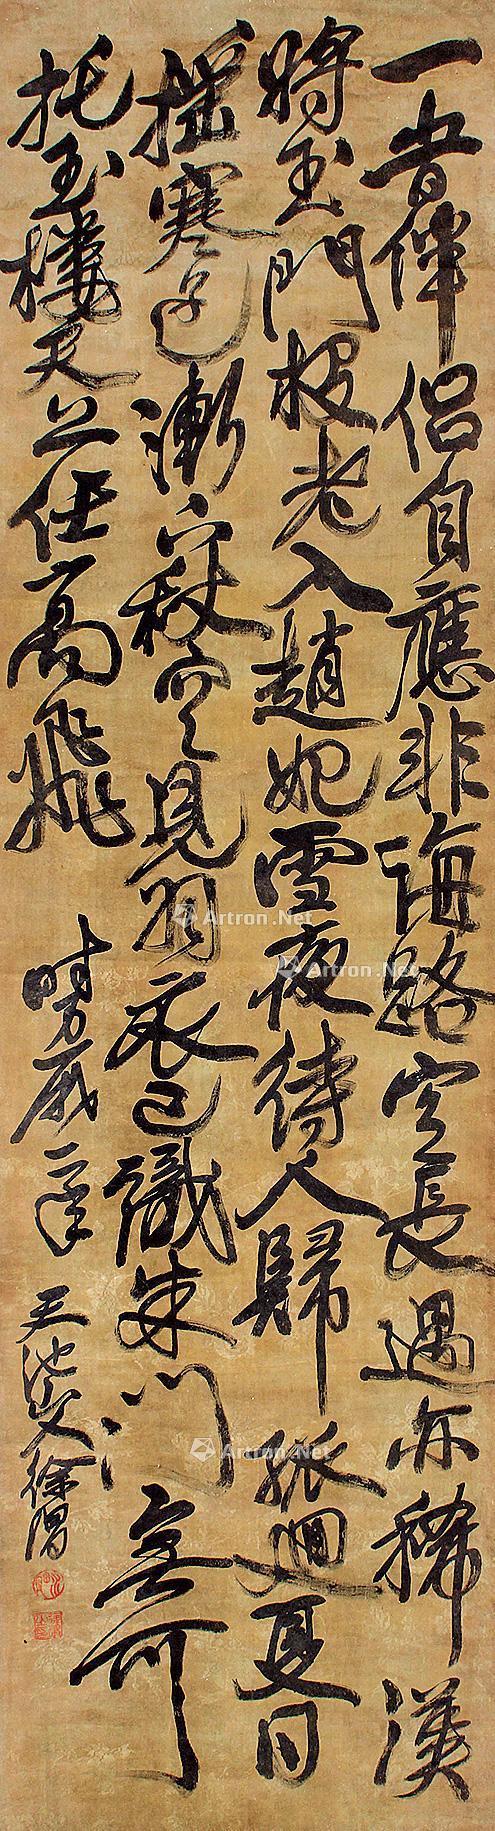 一伴侶自應非海路空長遇亦稀漢
將玉門投老入趙妃雪夜待人歸孤迴夏日
搖寒漸秋空見羽衣已識朱門無可
托玉樓天上任高飛
時萬
天池徐渭
Artron.Net
Artron.Net
Artron.Net